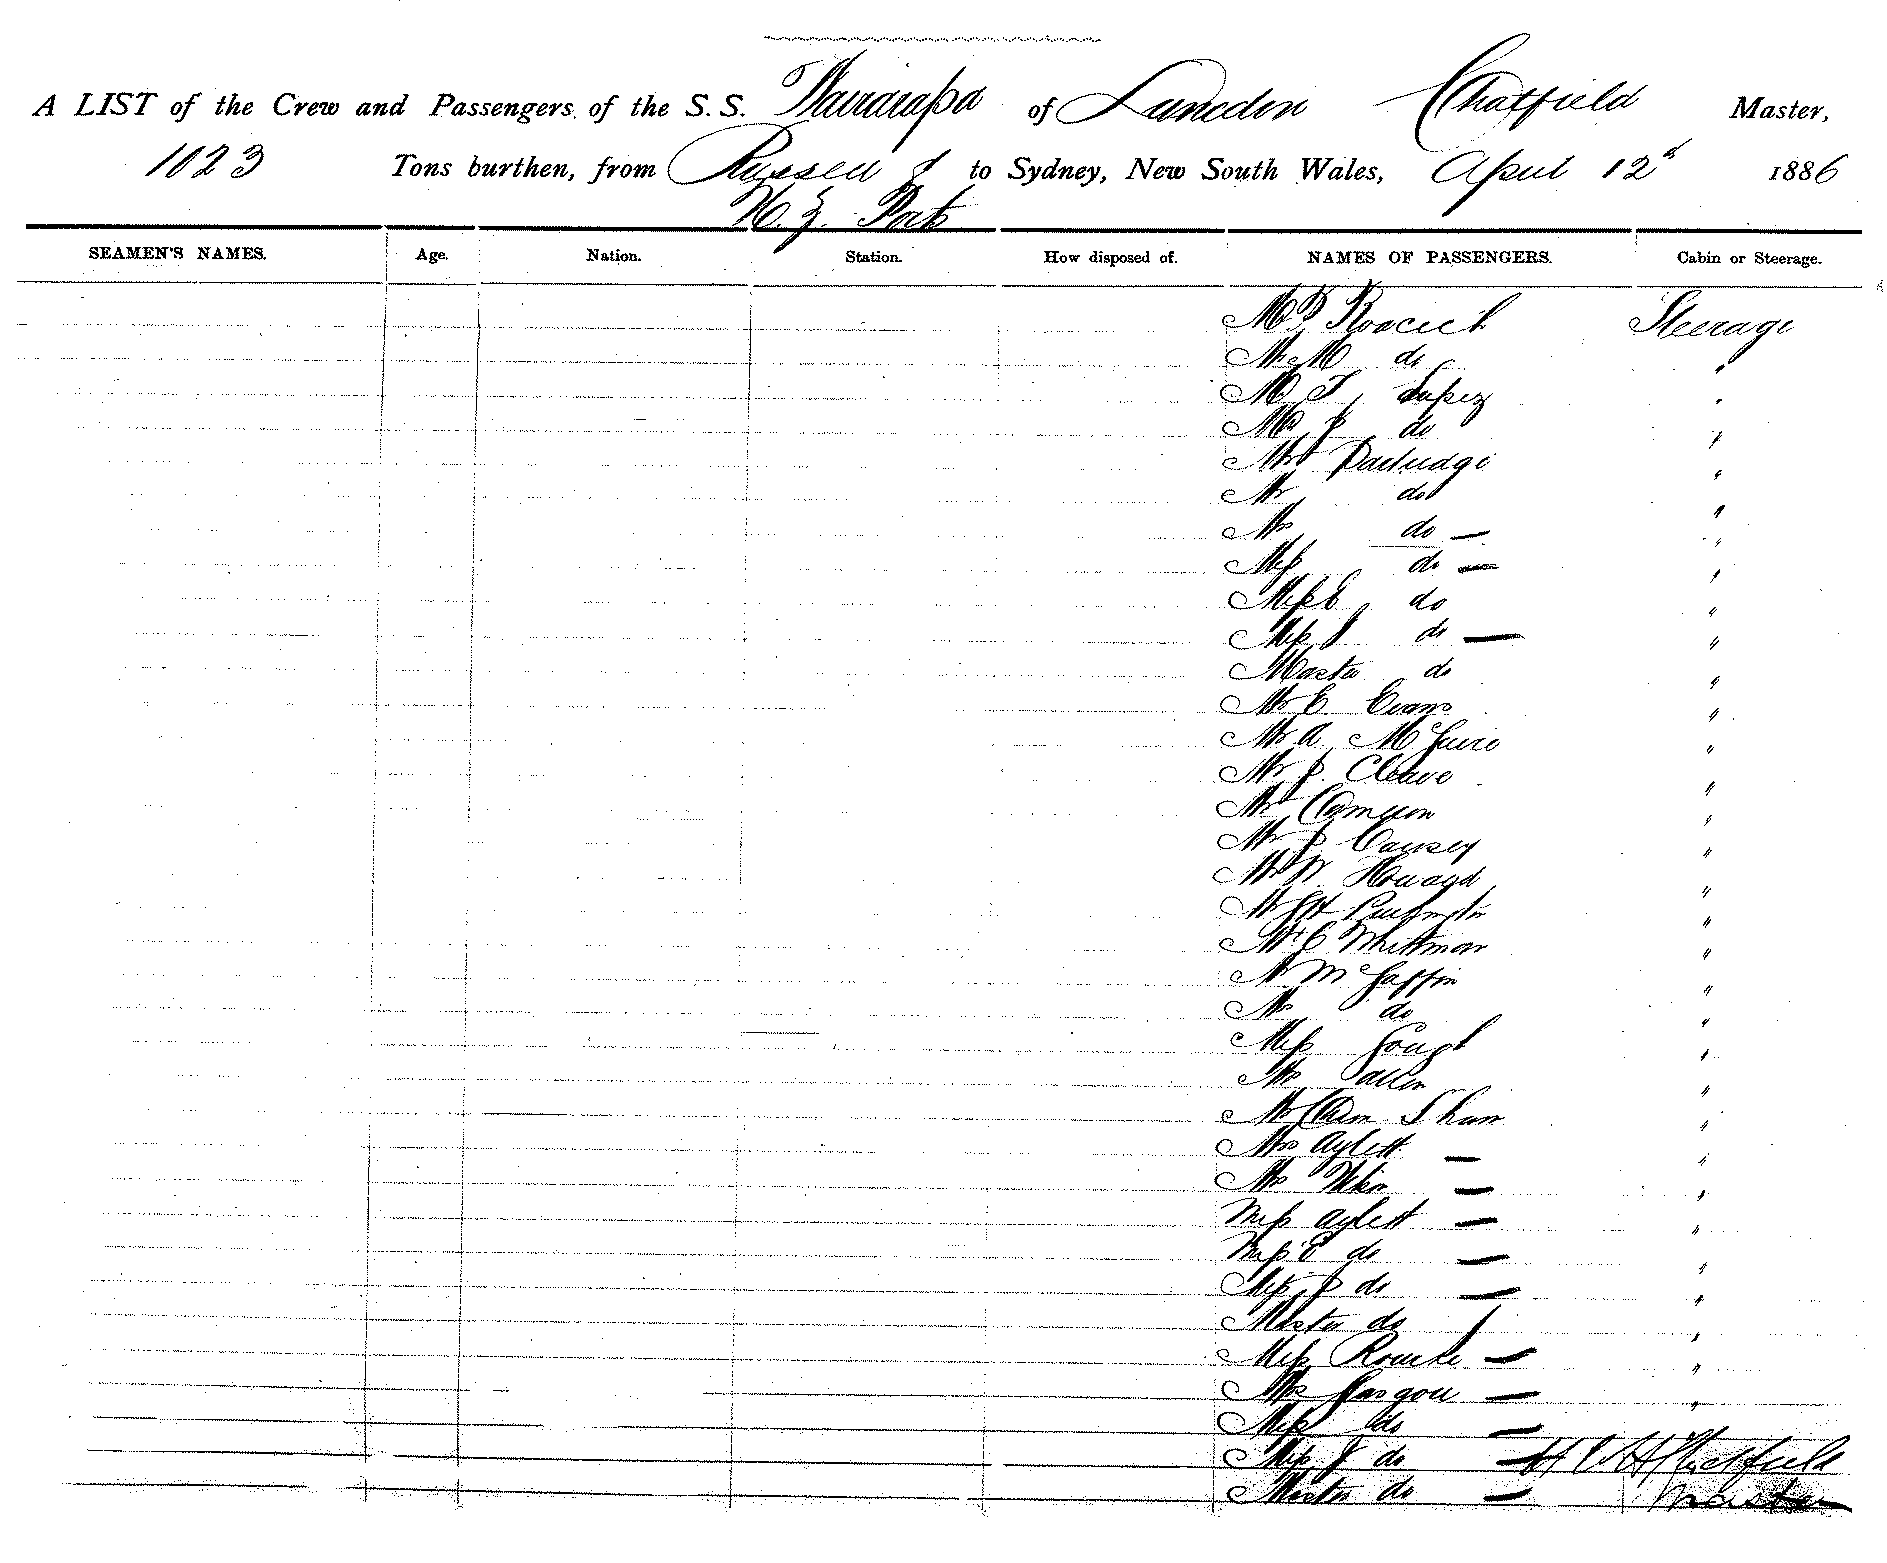 A LIST of the Crew and Passengers of the S.S. Wairarapa of Dunedin Chatfield Master,
1023 Tons burthen, from Russell & to Sydney, New South Wales, April 12th 1886
N.Z. Ports
SEAMEN'S NAMES. Age. Nation. Station. How disposed of. NAMES OF PASSENGERS. Cabin or Steerage.
Mr Steerage
Mr M do "
Mr T. Lopez "
Mr J do "
Mr Partridge "
Mr do "
Mrs do — "
Miss do — "
Miss E do "
Miss J do — "
Master do "
Mr E Evans "
Mr A McGuire "
Mr J. Cleave "
Mr Cameron "
Mr J Causey "
Mr W Howard "
Mr "
Mr C Whittman "
Mr McGaffin "
Mrs do "
Miss Gough "
Mrs Allen "
Mr Sham "
Mrs Aylett — "
Mrs — "
Miss Aylett — "
Miss E do — "
Miss J do — "
Master do "
Miss Rourke — "
Mrs — "
Miss do —
Miss J do — H Chatfield
Master do — Master